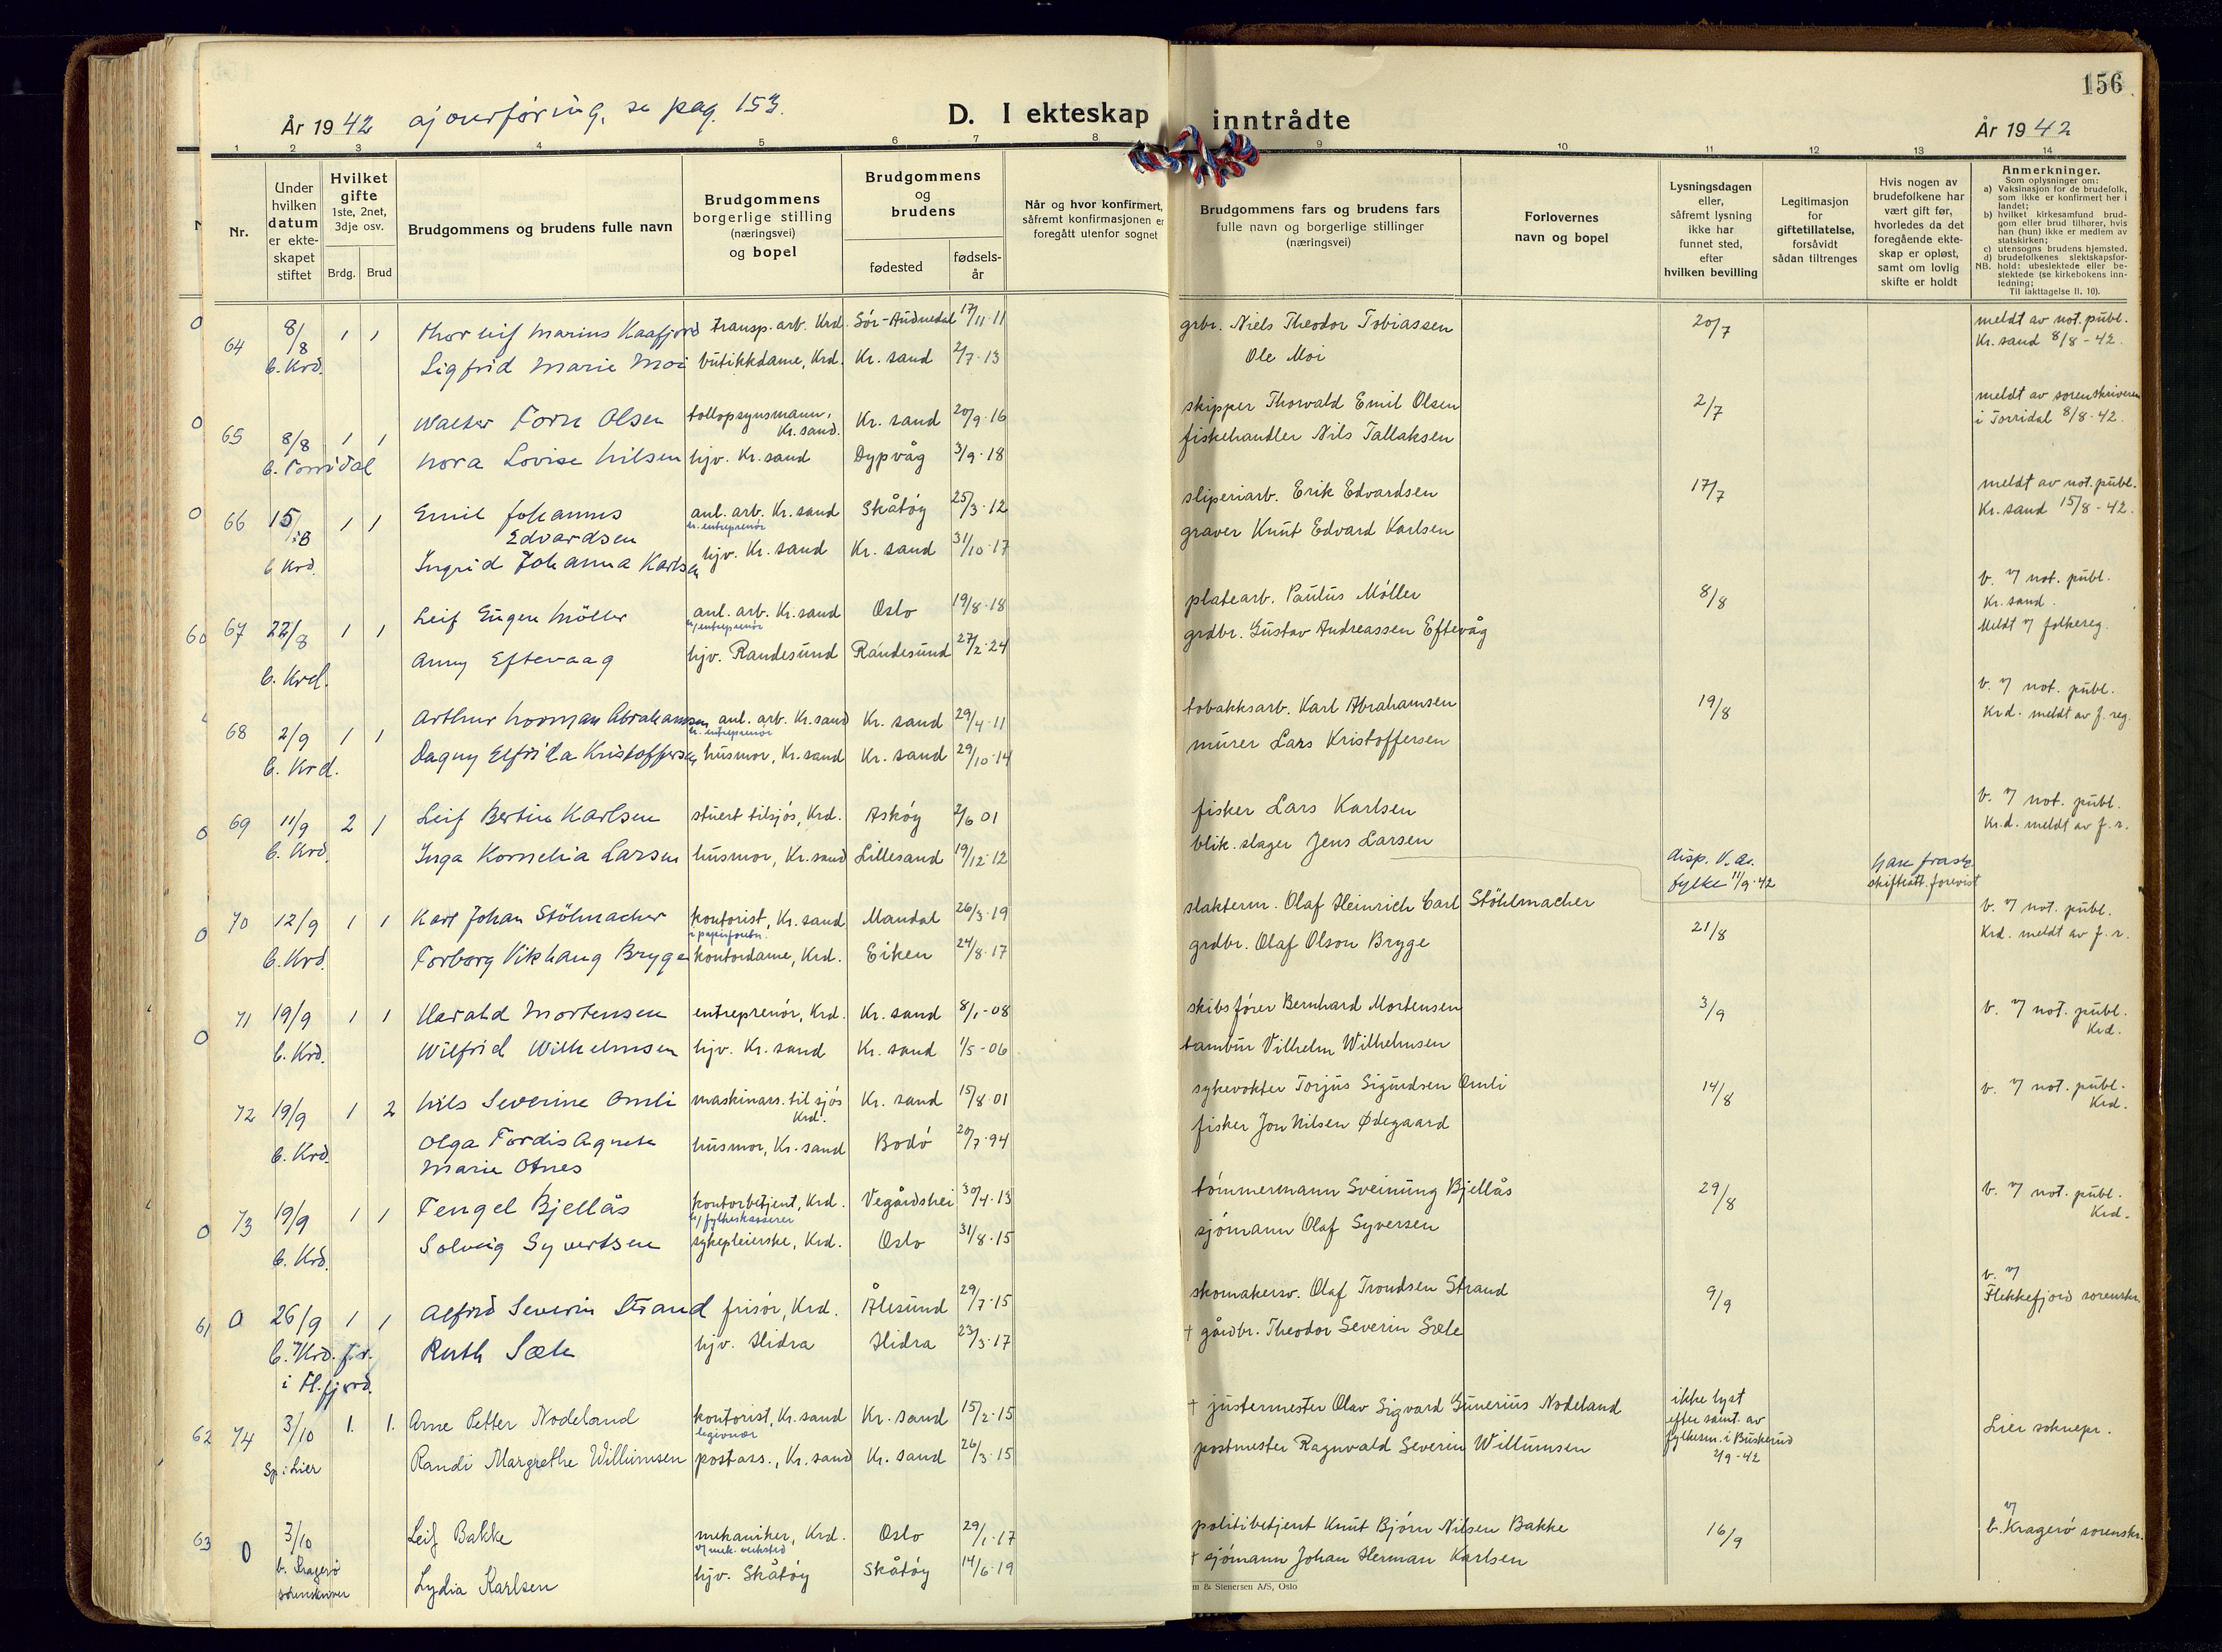 156
År 1942 ajourføring, se pag. 153.
D. I ekteskap inntrådte
År 1942
1 2 3 4 5 6 7 8 9 10 11 12 13 14
Nr.
Under hvilken datum er ekteskapet stiftet
Hvilket gifte 1ste, 2net, 3dje osv.
Brdg. Brud
Brudgommens og brudens fulle navn
Brudgommens borgerlige stilling (næringsvei) og bopel
Brudgommens og brudens
fødested
fødsels-år
Når og hvor konfirmert, såfremt konfirmasjonen er foregått utenfor sognet
Brudgommens fars og brudens fars fulle navn og borgerlige stillinger (næringsvei)
Forlovernes navn og bopel
Lysningsdagen eller, såfremt lysning ikke har funnet sted, efter hvilken bevilling
Legitimasjon for giftetillatelse, forsåvidt sådan tiltrenges
Hvis nogen av brudefolkene har vært gift før, hvorledes da det foregående ekteskap er opløst, samt om lovlig skifte er holdt
Anmerkninger.
Som oplysninger om:
a) Vaksinasjon for de brudefolk, som ikke er konfirmert her i landet;
b) hvilket kirkesamfund brudgom eller brud tilhører, hvis han (hun) ikke er medlem av statskirken;
c) utensogns brudens hjemsted.
d) brudefolkenes slektskapsforhold: ubeslektede eller beslektede (se kirkebokens innledning;
NB.
Til iakttagelse II. 10).
0 64 8/8 1 1 Thor Leif Marius Kaafjord transp. arb. Krd. Sør-Audnedal 17/11-11 grbr. Niels Theodor Tobiassen 20/7 meldt av not. publ.
b. Krd. Sigfrid Marie Moi butikkdame, Krd. Kr. sand 2/7-13 Ole Moi Kr. sand 8/8-42.
0 65 8/8 1 1 Walter Torn Olsen tollopsynsmann, Kr. sand. Kr. sand 20/9-16 skipper Thorvald Emil Olsen 2/7 meldt av sorenskriveren
b. Torridal Nora Lovise Nilsen hjv. Kr. sand Dypvåg 3/9-18 fiskehandler Nils Tallaksen i Torridal 8/8-42.
0 66 15/8 1 1 Emil Johannes Edvardsen anl. arb. Kr. sand Skåtøy 25/3-12 sliperiarb. Erik Edvardsen 17/7 meldt av not. publ.
hr. entreprenør
b. Krd. Ingrid Johanna Karlsen hjv. Kr. sand Kr. sand 31/10-17 graver Knut Edvard Karlsen Kr. sand 15/8-42.
60 67 22/8 1 1 Leif Eugen Møller anl. arb. Kr. sand Oslo 19/8-18 platearb. Paulus Møller 8/8 b. v/ not. publ. Kr. sand.
v/ entreprenør
b. Krd. Anny Eftevaag hjv. Randesund Randesund 27/2-24 grdbr. Gustav Andreassen Eftevåg Meldt v/ folkereg.
68 2/9 1 1 Arthur Norman Abrahamsen anl. arb. Kr. sand Kr. sand 29/4-11 tobakksarb. Karl Abrahamsen 19/8 b. v/ not. publ.
hr. entreprenør
b. Krd. Dagny Elfrida Kristoffersen husmor, Kr. sand Kr. sand 29/10-14 murer Lars Kristoffersen Krd. meldt av f. reg.
0 69 11/9 2 1 Leif Bertin Karlsen stuert tilsjøs, Krd. Askøy 2/6 01 fisker Lars Karlsen b. v/ not. publ.
b. Krd. Inga Kornelia Larsen husmor, Kr. sand Lillesand 19/12-12 blik.slager Jens Larsen Kr.d. meldt av f. r.
disp. V. A. fylke 11/9-42 skifteatt. forevist
0 70 12/9 1 1 Karl Johan Stöhlmacher kontorist, Kr. sand Mandal 26/3-19 slakterm. Olaf Heinrich Carl Stöhlmacher 21/8 b. v/ not. publ.
b. Krd. Torborg Vikhaug Bryge kontordame, Krd. Eiken 24/8-17 grdbr. Olaf Olson Bryge Krd. meldt av f. r.
0 71 19/9 1 1 Harald Mortensen entreprenør, Krd. Kr. sand 8/1-08 skibsfører Bernhard Mortensen 3/9 b. v/ not. publ. Krd.
b. Krd. Wilfrid Wilhelmsen hjv. Kr. sand Kr. sand 1/5-06 tambur Vilhelm Wilhelmsen
72 19/9 1 2 Nils Severine Omli maskinass. til sjøs Krd. Kr. sand 15/8-01 sykevokter Torjus Sigurdsen Omli 14/8 b. v/ not. publ. Krd.
b. Krd. Olga Tordis Agnete Marie Otnes husmor, Kr. sand Bodø 20/7-94 fisker Jon Nilsen Ødegaard
0 73 19/9 1 1 Tengel Bjellås kontorbetjent, Krd. Vegårdshei 30/4-13 tømmermann Sveinung Bjellås 29/8 b. v/ not. publ. Krd.
h/ fylkeskasserer
b. Krd. Solveig Syvertsen sykepleierske, Krd. Oslo 31/8-15 sjømann Olaf Syversen
61 0 26/9 1 1 Alfred Severin Strand frisør, Krd. Ålesund 29/7-15 skomakersv. Olaf Trondsen Strand 9/9 b. v/ Flekkefjord sorenskr.
b. Krd. i Fl.fjord. Ruth Sæle hjv. Hidra Hidra 23/3-17 + gårdbr. Theodor Severin Sæle
62 74 3/10 1. 1. Arne Petter Nodeland kontorist, Kr. sand Kr. sand 15/2-15 + justermester Olav Sigvard Gunerius Nodeland ikke lyst efter samt. av fylkesm. i Buskerud 2/9-42 Lier soknepr.
legionær
Sp. i Lier Randi Margrethe Willumsen postass., Kr. sand Kr. sand 26/3-15 postmester Ragnvald Severin Willumsen
63 0 3/10 Leif Bakke mekaniker, Krd. Oslo 29/1-17 politibetjent Knut Bjørn Nilsen Bakke 16/9 v/ b. Kragerø sorenskr.
v/ mek. verksted
b. Kragerø sorenskriver Lydia Karlsen hjv. Skåtøy Skåtøy 14/6-19 + sjømann Johan Herman Karlsen
m & Stenersen A/S, Oslo